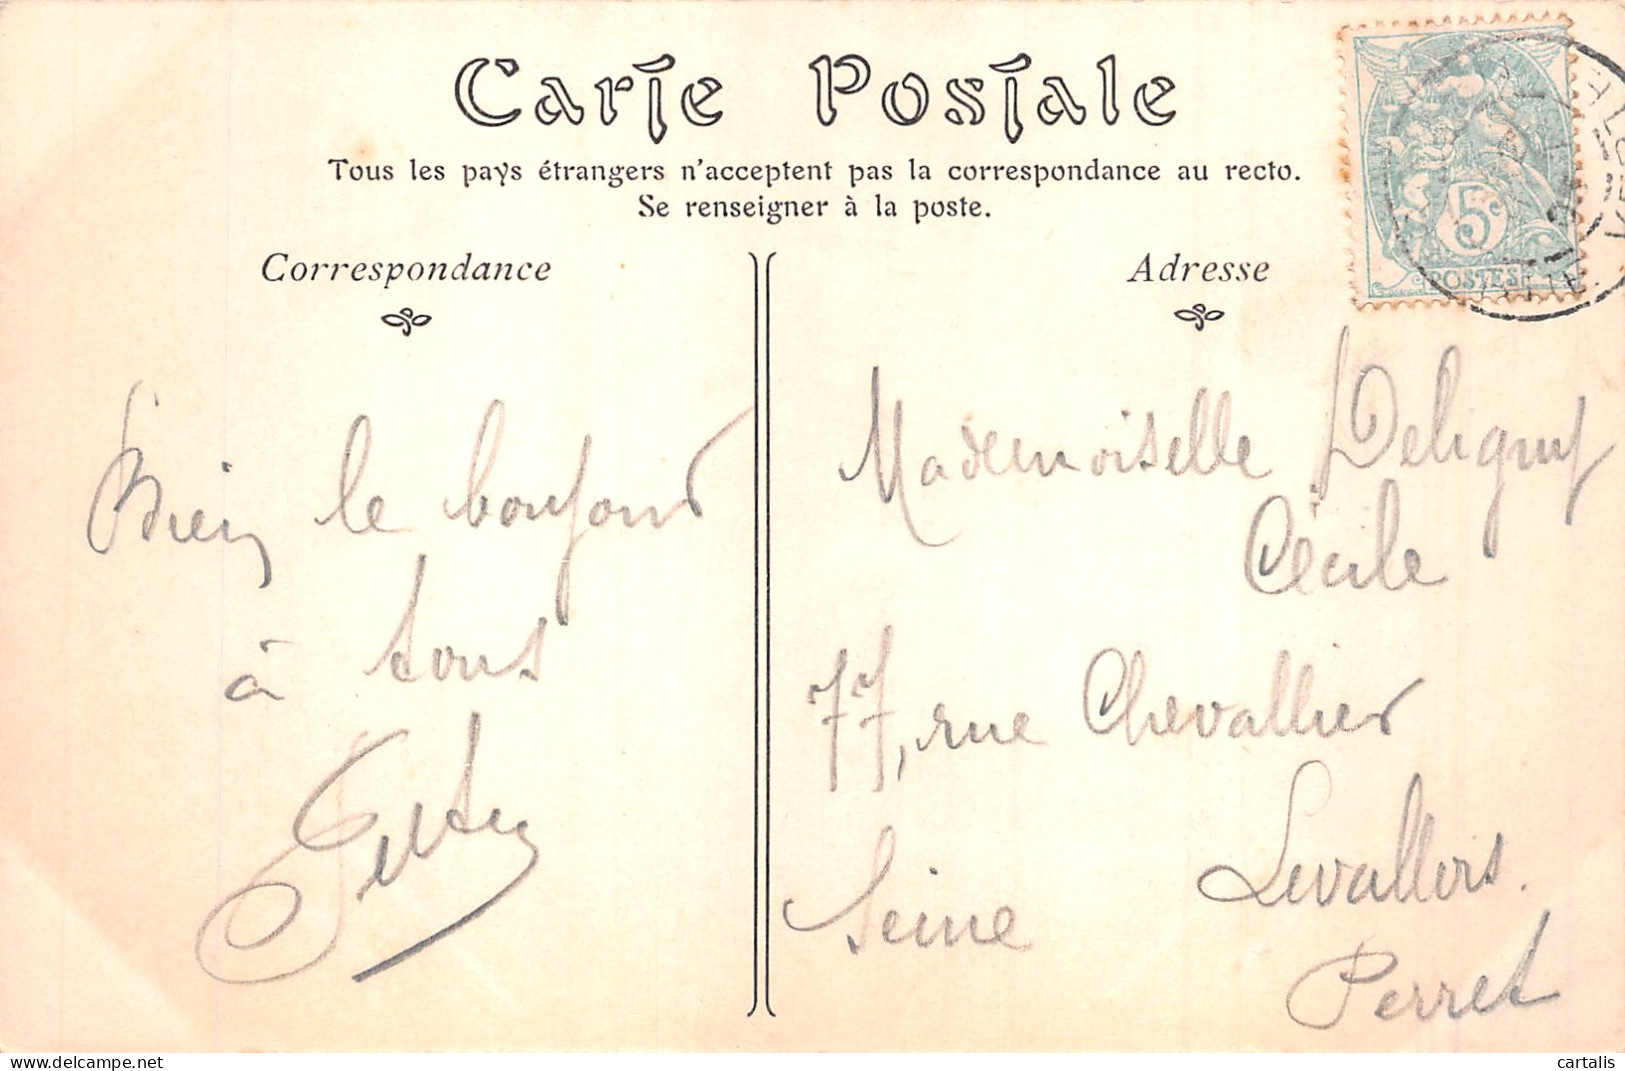 Carte Postale
Tous les pays étrangers n'acceptent pas la correspondance au recto.
Se renseigner à la poste.
Correspondance
Adresse
5c
POSTES
Bien le bonjour
à tous
Mademoiselle Deligny
Cécile
77, rue Chevallier
Levallois.
Perret
Seine
cartalis